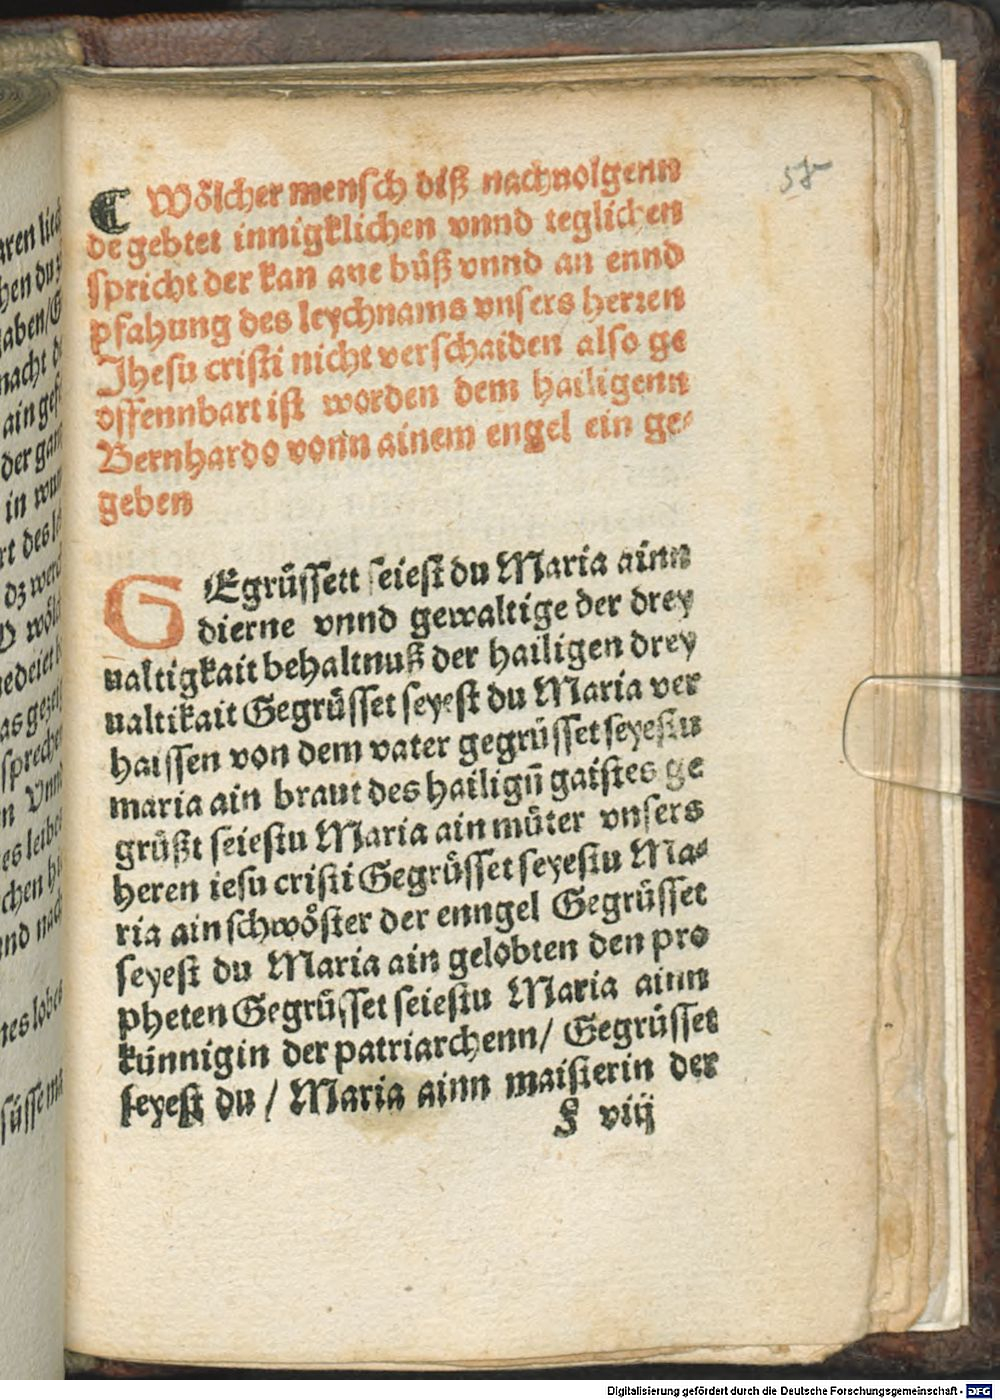 58
¶ Wölcher mensch diß nachuolgenn
de gebtet innigklichen vnnd teglichen
spricht der kan ane büß vnnd an ennd
pfahung des leychnams vnsers herren
Jhesu cristi nicht verschaiden also ge
offennbart ist worden dem hailigenn
Bernhardo vonn ainem engel ein ge⸗
geben
GEgrüssett seiest du Maria ainn
dierne vnnd gewaltige der drey
ualtigkait behaltnuß der hailigen drey
ualtikait Gegrüsset seyest du Maria ver
haissen von dem vater gegrüsset seyestu
maria ain braut des hailigñ gaistes ge
grüßt seiestu Maria ain müter vnsers
heren iesu cristi Gegrüsset seyestu Ma⸗
ria ain schwöster der enngel Gegrüsset
seyest du Maria ain gelobten den pro
pheten Gegrüsset seiestu Maria ainn
künnigin der patriarchenn/ Gegrüsset
seyest du / Maria ainn maisterin der
f viij
aren lieb
hen du
haben/
nacht
der
in wun
rt des
dz werd
wöl
gedeiet
as
spreche
n Vnnd
es leibe
chen
nd nach
nes lobes
süsse ma
Digitalisierung gefördert durch die Deutsche Forschungsgemeinschaft - DFG